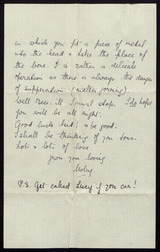 in which you fit a piece of metal
into the head & take the place of
the bone. It is rather a delicate
operation as there is always the danger
of suppuration (matter forming).
Well Dear. I must stop. I do hope
you will be all right.
Good luck lad; & be good.
I shall be thinking of you soon.
Lots & lots of love
from your loving
P.S. Get called early if you can!